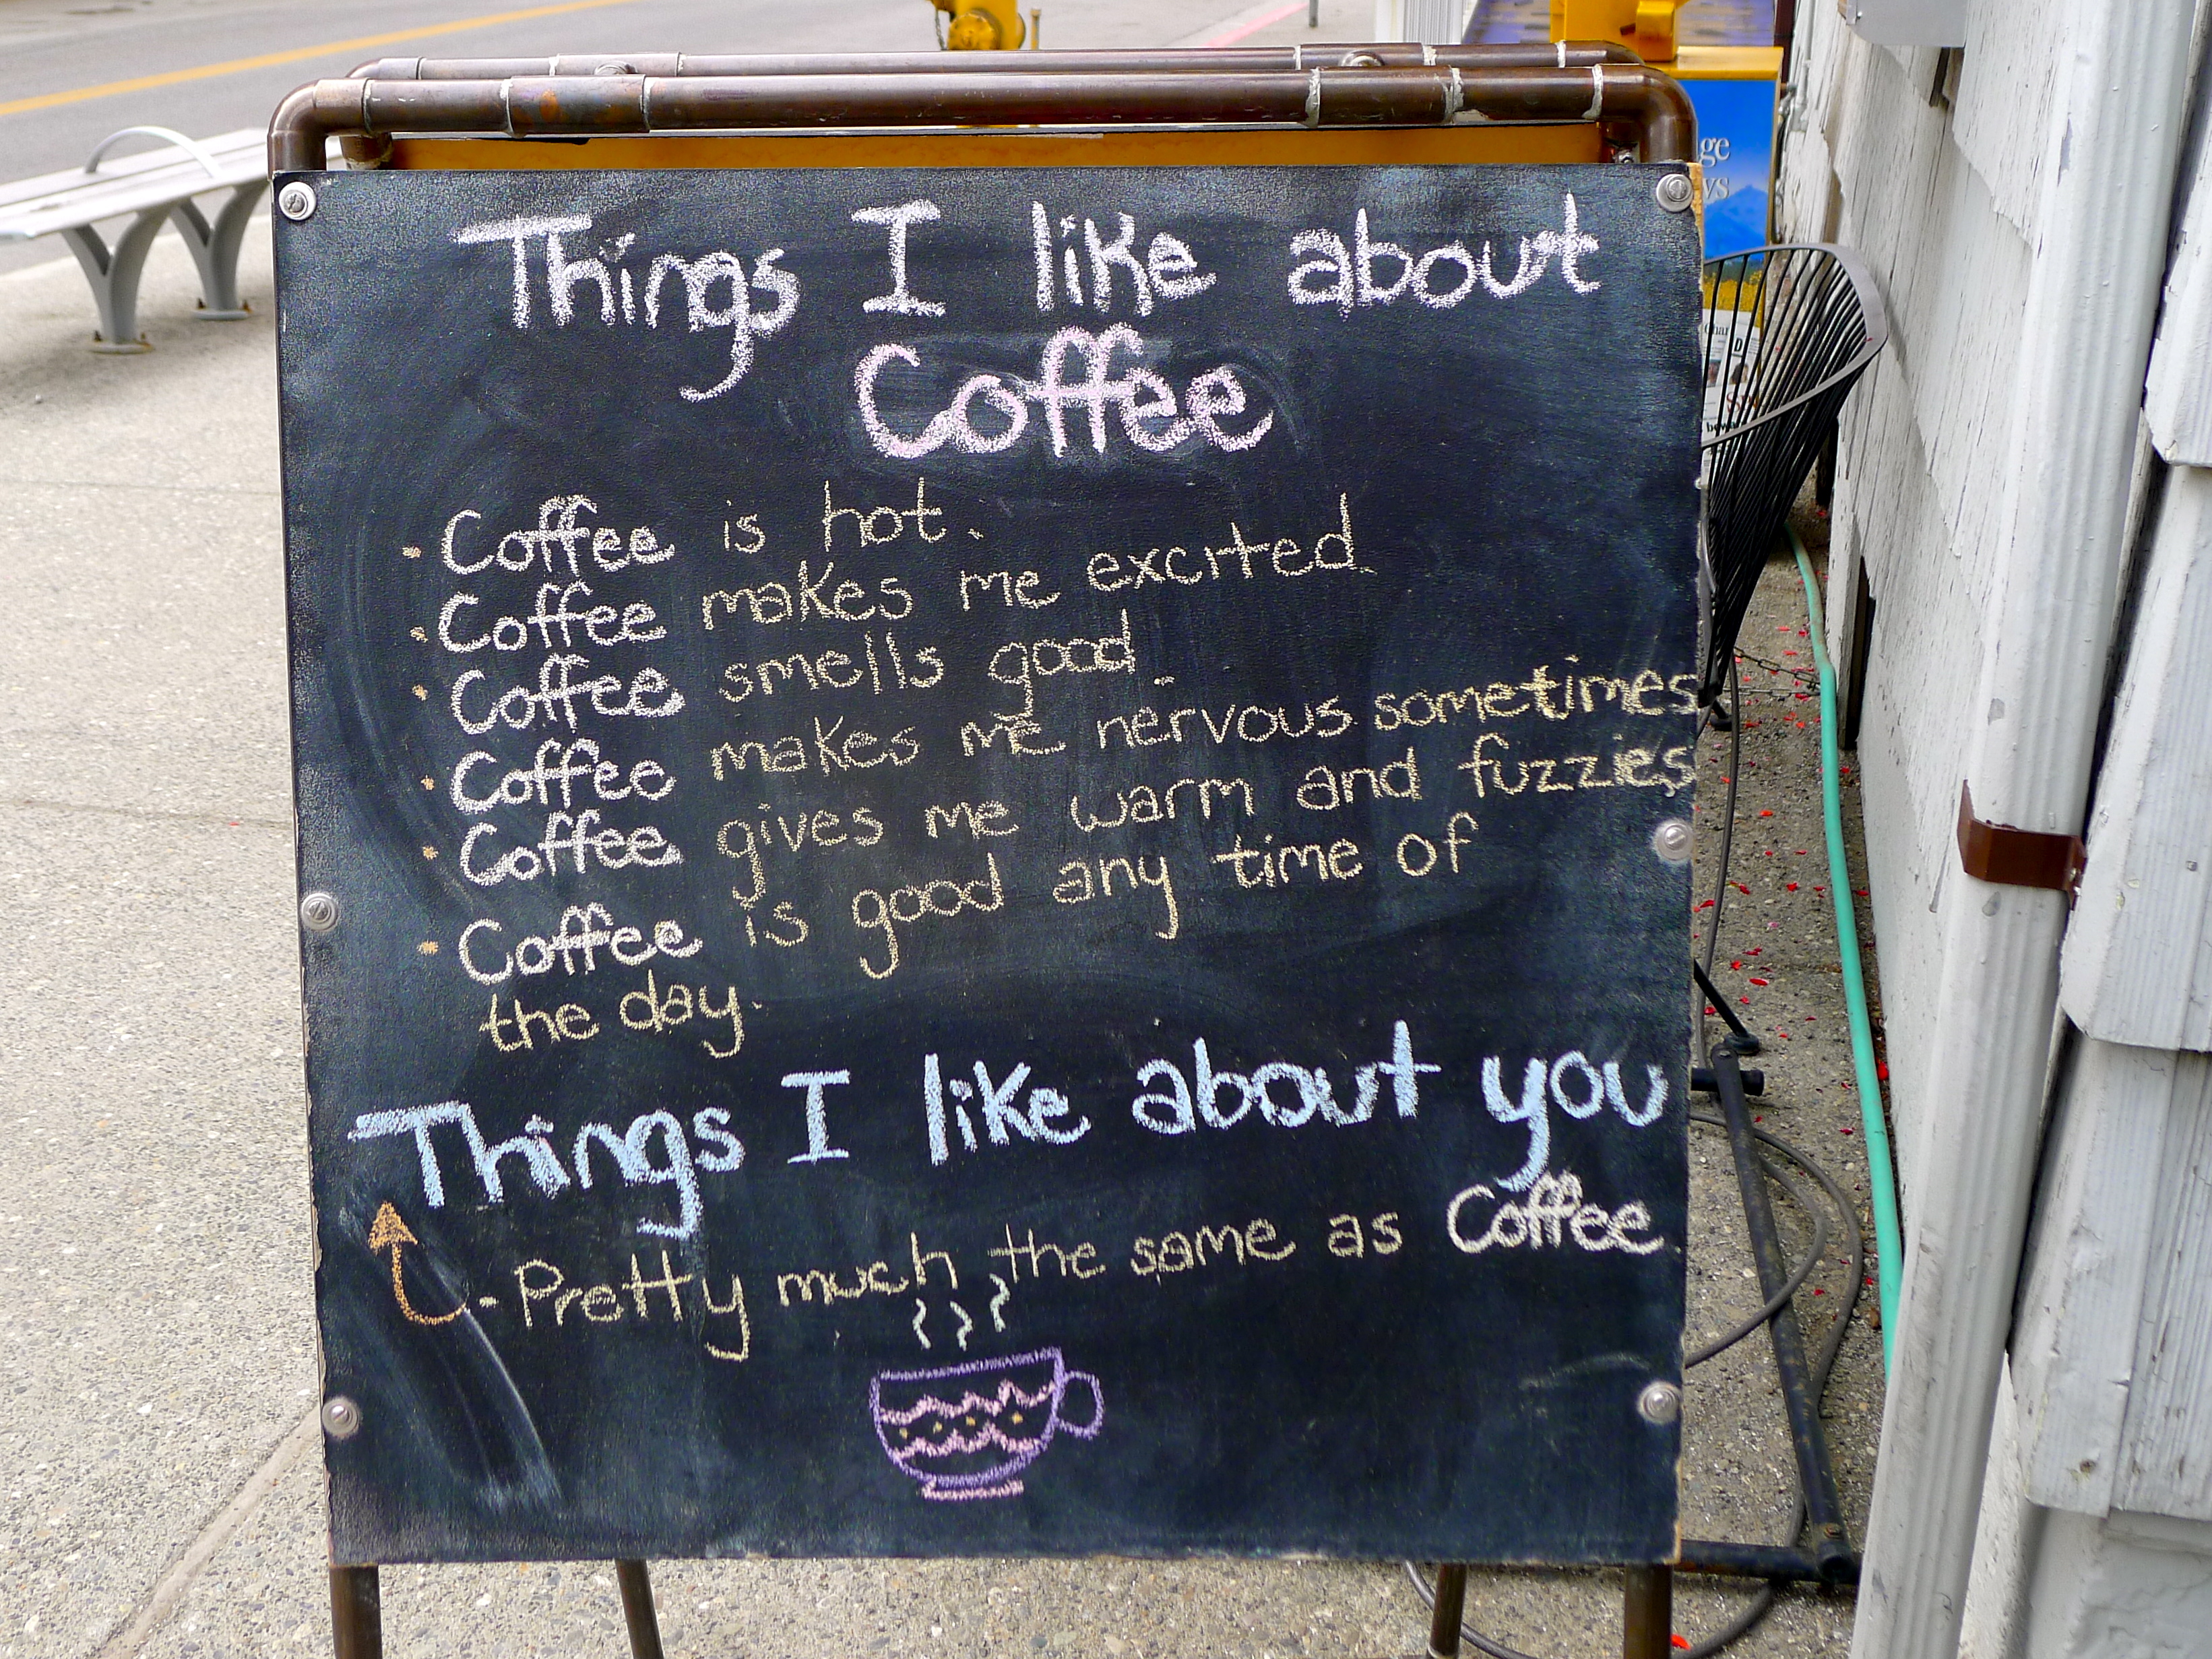 Things I like about
Coffee
· Coffee is hot.
· Coffee makes me excited.
· Coffee smells good.
· Coffee makes me nervous sometimes
· Coffee gives me warm and fuzzies
· Coffee is good any time of
the day.
Things I like about you
- Pretty much the same as Coffee
ge
ys